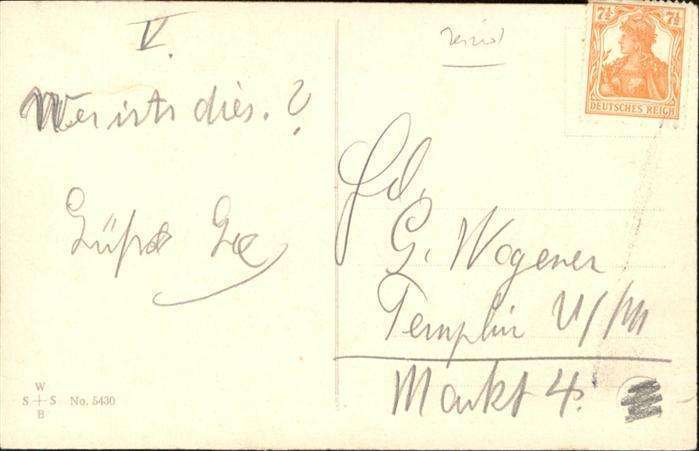 V.
Wer ists dies. ?
Grüße
7½ 7½
DEUTSCHES REICH
G. Wagener
Templin U/M
Markt 4.
W
S + S No. 5430
B